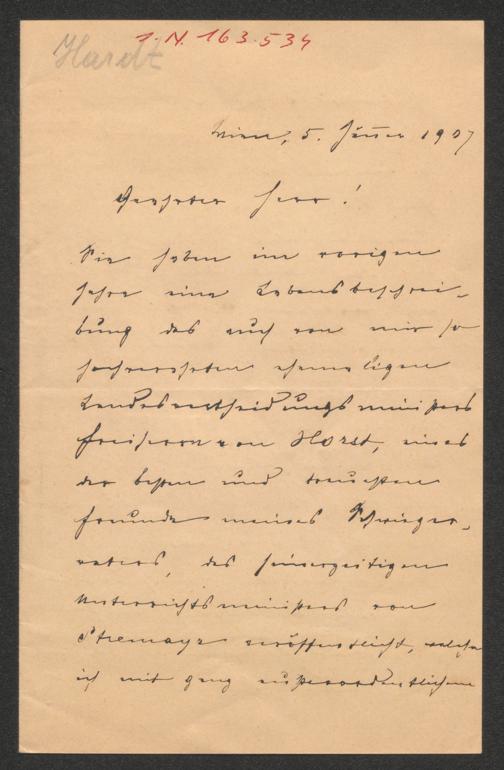 Hardt
I.N. 163.534
Wien, 5. Jänner 1907
Geehrter Herr!
Sie haben im vorigen
Jahre eine Lebensbeschrei-
bung des auch von mir so
hochverehrten ehemaligen
Landesvertheidigungsministers
Freiherrn von Horst, eines
der besten und treuesten
Freunde meines Schwieger-
vaters, des seinerzeitigen
Unterrichtsministers von
Stremayr veröffentlicht, welche
ich mit ganz außerordentlichem